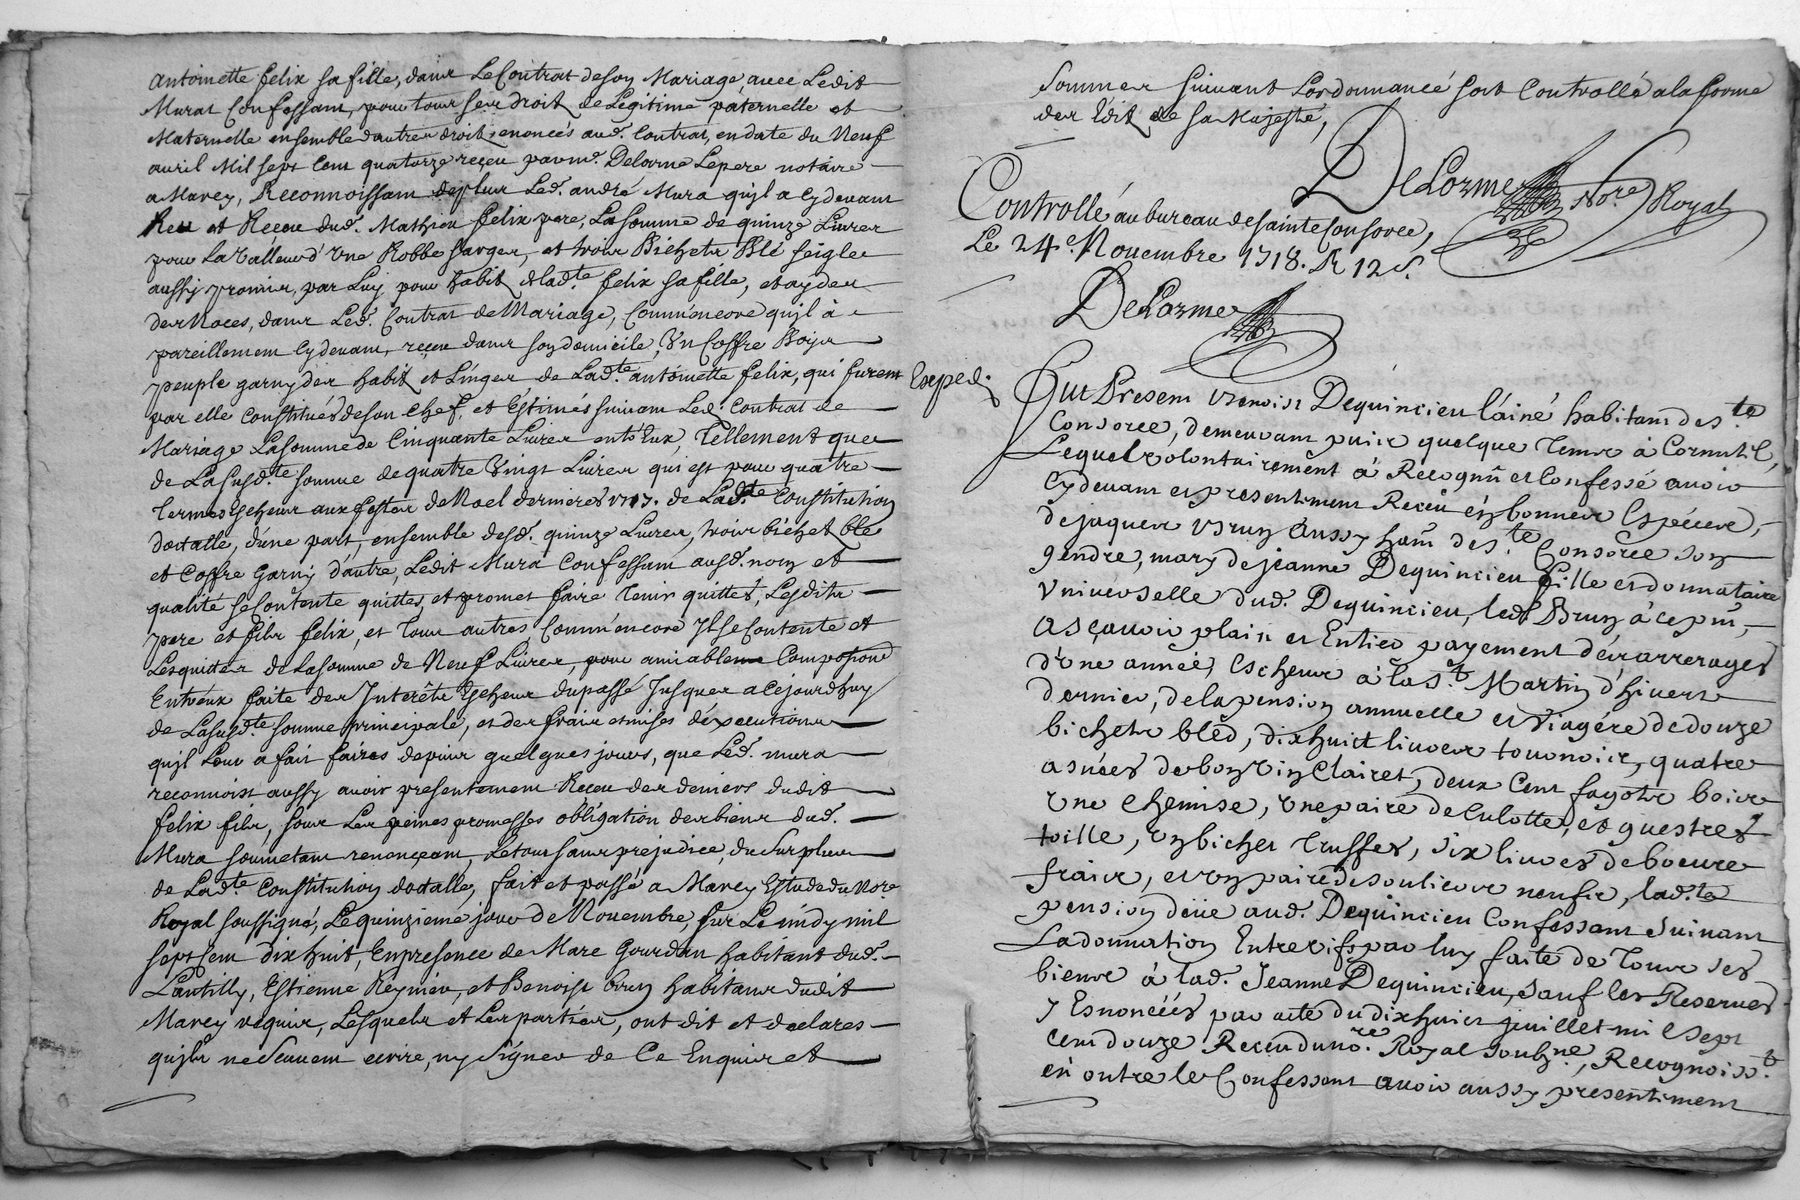 antoinette felix sa fille, dans Le Contrat de son Mariage, avec Ledit
Murat Confessant, pour tous ses droit de Legitime paternelle et
Maternelle ensemble dautres droits enoncés aud. Contrat, en date du Neuf
auril Mil sept Cent quatorze receu par me. Delorme Le pere notaire
a Marcy, Reconnoissam deplus Led. andré Mura qu'jl a Cydeuant
Heu et Receu dud. Mathieu felix pere, La somme de quinze Liures
pour La Valleur d'Une Robbe sarge, et trois Bichets Blé seigle
aussy promis, par Luy pour habit de lad.te felix sa fille, et aydes
des Noces, dans Led. Contrat de Mariage, Comm'encore qu'jl à
pareillement Cydeuant, receu dans son domicile, Un Coffre Bois
peuple garny des habit et Linges de Lad.te antoinette felix, qui furent
par elle Constitués de son Chef, et Estimés suiuam Led. Contrat de
Mariage La somme de Cinquante Liures entr'Eux, Tellement que
de La susd.te somme de quatre Vingt Liures qui est pour quatre
Termes Escheus aux festes de Noel dernieres 1717. de Lad.te Constitution
dotalle, d'une part, ensemble desd. quinze Liures, trois bichet blé
et Coffre Garny d'autre, Ledit Mura Confessam ausd. nom et
qualité se Contente quittes, et promet faire Tenir quittes, Lesdits
pere et fils felix, et Tous autres, Comm'encore Jl se Contente et
Les quittes de La somme de Neuf Liures, pour amiable Composion
Entreux faite des Interêts Escheus du passé Jusques a Cejourdhuy
de La susd.te somme principale, et des frais et mises d'execution
qu'jl Leur a fait faires depuis quelques jours, que Led. mura
reconnoist aussy auoir presentement Receu des deniers dudit
felix fils, sous Les peines promesses obligation des biens dud.
Mura soumetam renonçeam, Le tout sans prejudice, du surplus
de Lad.te Constitution dotalle, fait et passé a Marcy Estude du No.re
Royal soussigné, Le quinzieme jour de Nouembre, sur Le midy mil
sept Cent dix huit, En presence de Marc Gourdan habitant dud.
Lantilly, Estienne Reynier, et Benoist brun habitans dudit
Marcy requis, Lesquels et Les parties, ont dit et declares
qu'jls ne Scauent ecrire, ny signer de Ce Enquis et
sommer suiuant Lordonnance sort Controllé a la forme
des Edit de sa Majesté,
DeLorme No.re Royal
Controllé au bureau de sainte Consorce,
Le 24e. Nouembre 1718. R 12 s.
DeLorme
Exped.
Fut Present Benoist Dequincieu l'ainé habitam de s.te
Consorce, demeurant puis quelque Tems à Cornutil,
Lequel volontairement à Recognu et Confessé auoir
Cydeuant et presentement Receu en bonnes Especes,
de jaques Brun aussy ham de s.te Consorce son
gendre, mary de jeanne Dequincieu fille et donnataire
Vniuerselle dud. Dequincieu, led. Brun à ce pnt,
Asçauoir plain et Entier payement des arrerages
d'vne année, Escheue à la s.t Martin d'hiuert
dernier, de la pension annuelle et viagére de douze
bichets bléd, dix huict liures tournois, quatre
asnées de bon Vin Clairet, deux Cent fagots bois
vne Chemise, vne paire de Culottes, et guestres
toille, vn bichet truffes, six liures de beurre
frais, et vn paire de souliers neufs, lad.te
pension déüe aud. Dequincieu Confessant suiuant
La donnation Entre vifs par luy faite de Tous ses
biens à lad. Jeanne Dequincieu, sauf les Reserues
y Esnoncées par acte du dix huict juillet mil sept
Cent douze Receu du no.re Royal soubz.ne, Recognoiss.t
en outre le Confessant auoir aussy presentement